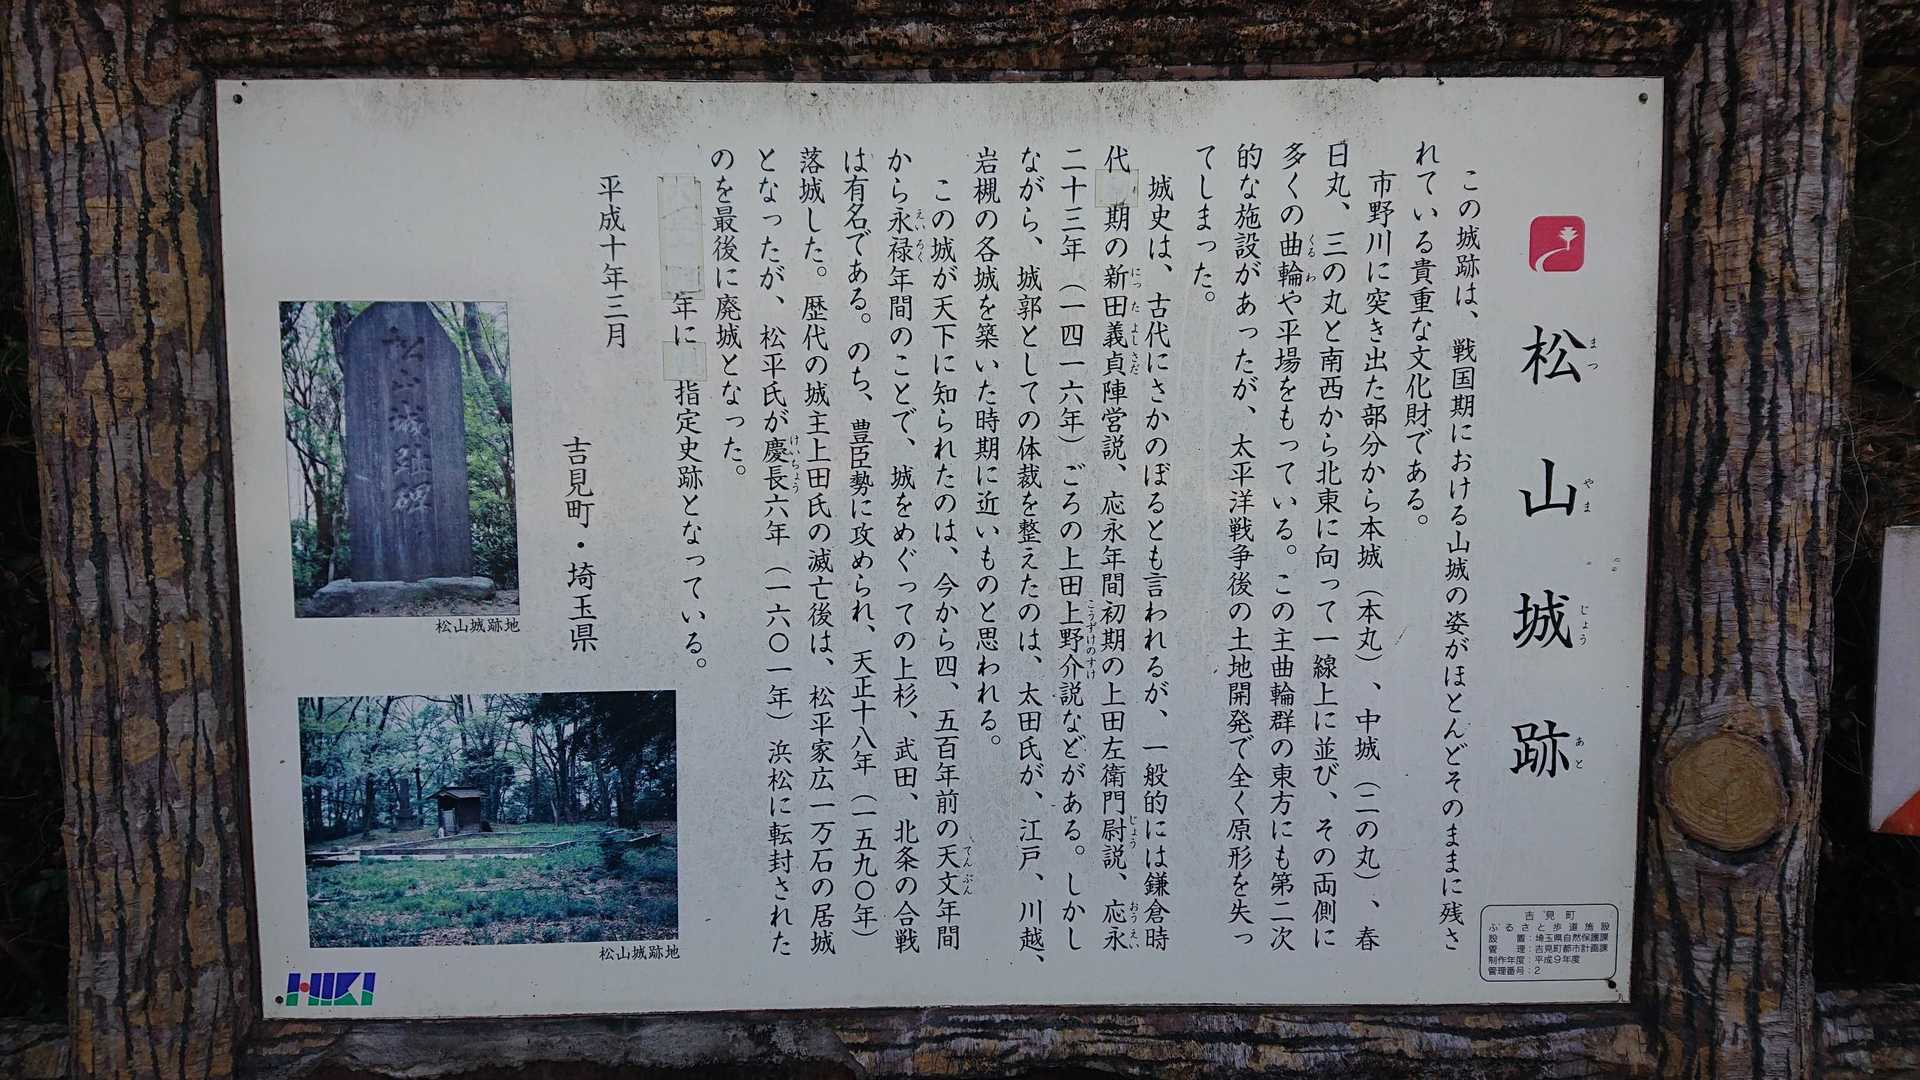 松山城跡
まつ やま じょう あと
この城跡は、戦国期における山城の姿がほとんどそのままに残さ
れている貴重な文化財である。
市野川に突き出た部分から本城（本丸）、中城（二の丸）、春
日丸、三の丸と南西から北東に向って一線上に並び、その両側に
多くの曲輪や平場をもっている。この主曲輪群の東方にも第二次
くるわ
的な施設があったが、太平洋戦争後の土地開発で全く原形を失っ
てしまった。
城史は、古代にさかのぼるとも言われるが、一般的には鎌倉時
代 期の新田義貞陣営説、応永年間初期の上田左衛門尉説、応永
にった よしさだ じょう おうえい
二十三年（一四一六年）ごろの上田上野介説などがある。しかし
こうずけのすけ
ながら、城郭としての体裁を整えたのは、太田氏が、江戸、川越、
岩槻の各城を築いた時期に近いものと思われる。
この城が天下に知られたのは、今から四、五百年前の天文年間
てんぶん
から永禄年間のことで、城をめぐっての上杉、武田、北条の合戦
えいろく
は有名である。のち、豊臣勢に攻められ、天正十八年（一五九〇年）
落城した。歴代の城主上田氏の滅亡後は、松平家広一万石の居城
となったが、松平氏が慶長六年（一六〇一年）浜松に転封された
けいちょう
のを最後に廃城となった。
年に 指定史跡となっている。
平成十年三月
吉見町・埼玉県
松山城趾碑
松山城跡地
松山城跡地
HIKI
吉見町
ふるさと歩道施設
設置：埼玉県自然保護課
管理：吉見町都市計画課
制作年度：平成9年度
管理番号：2